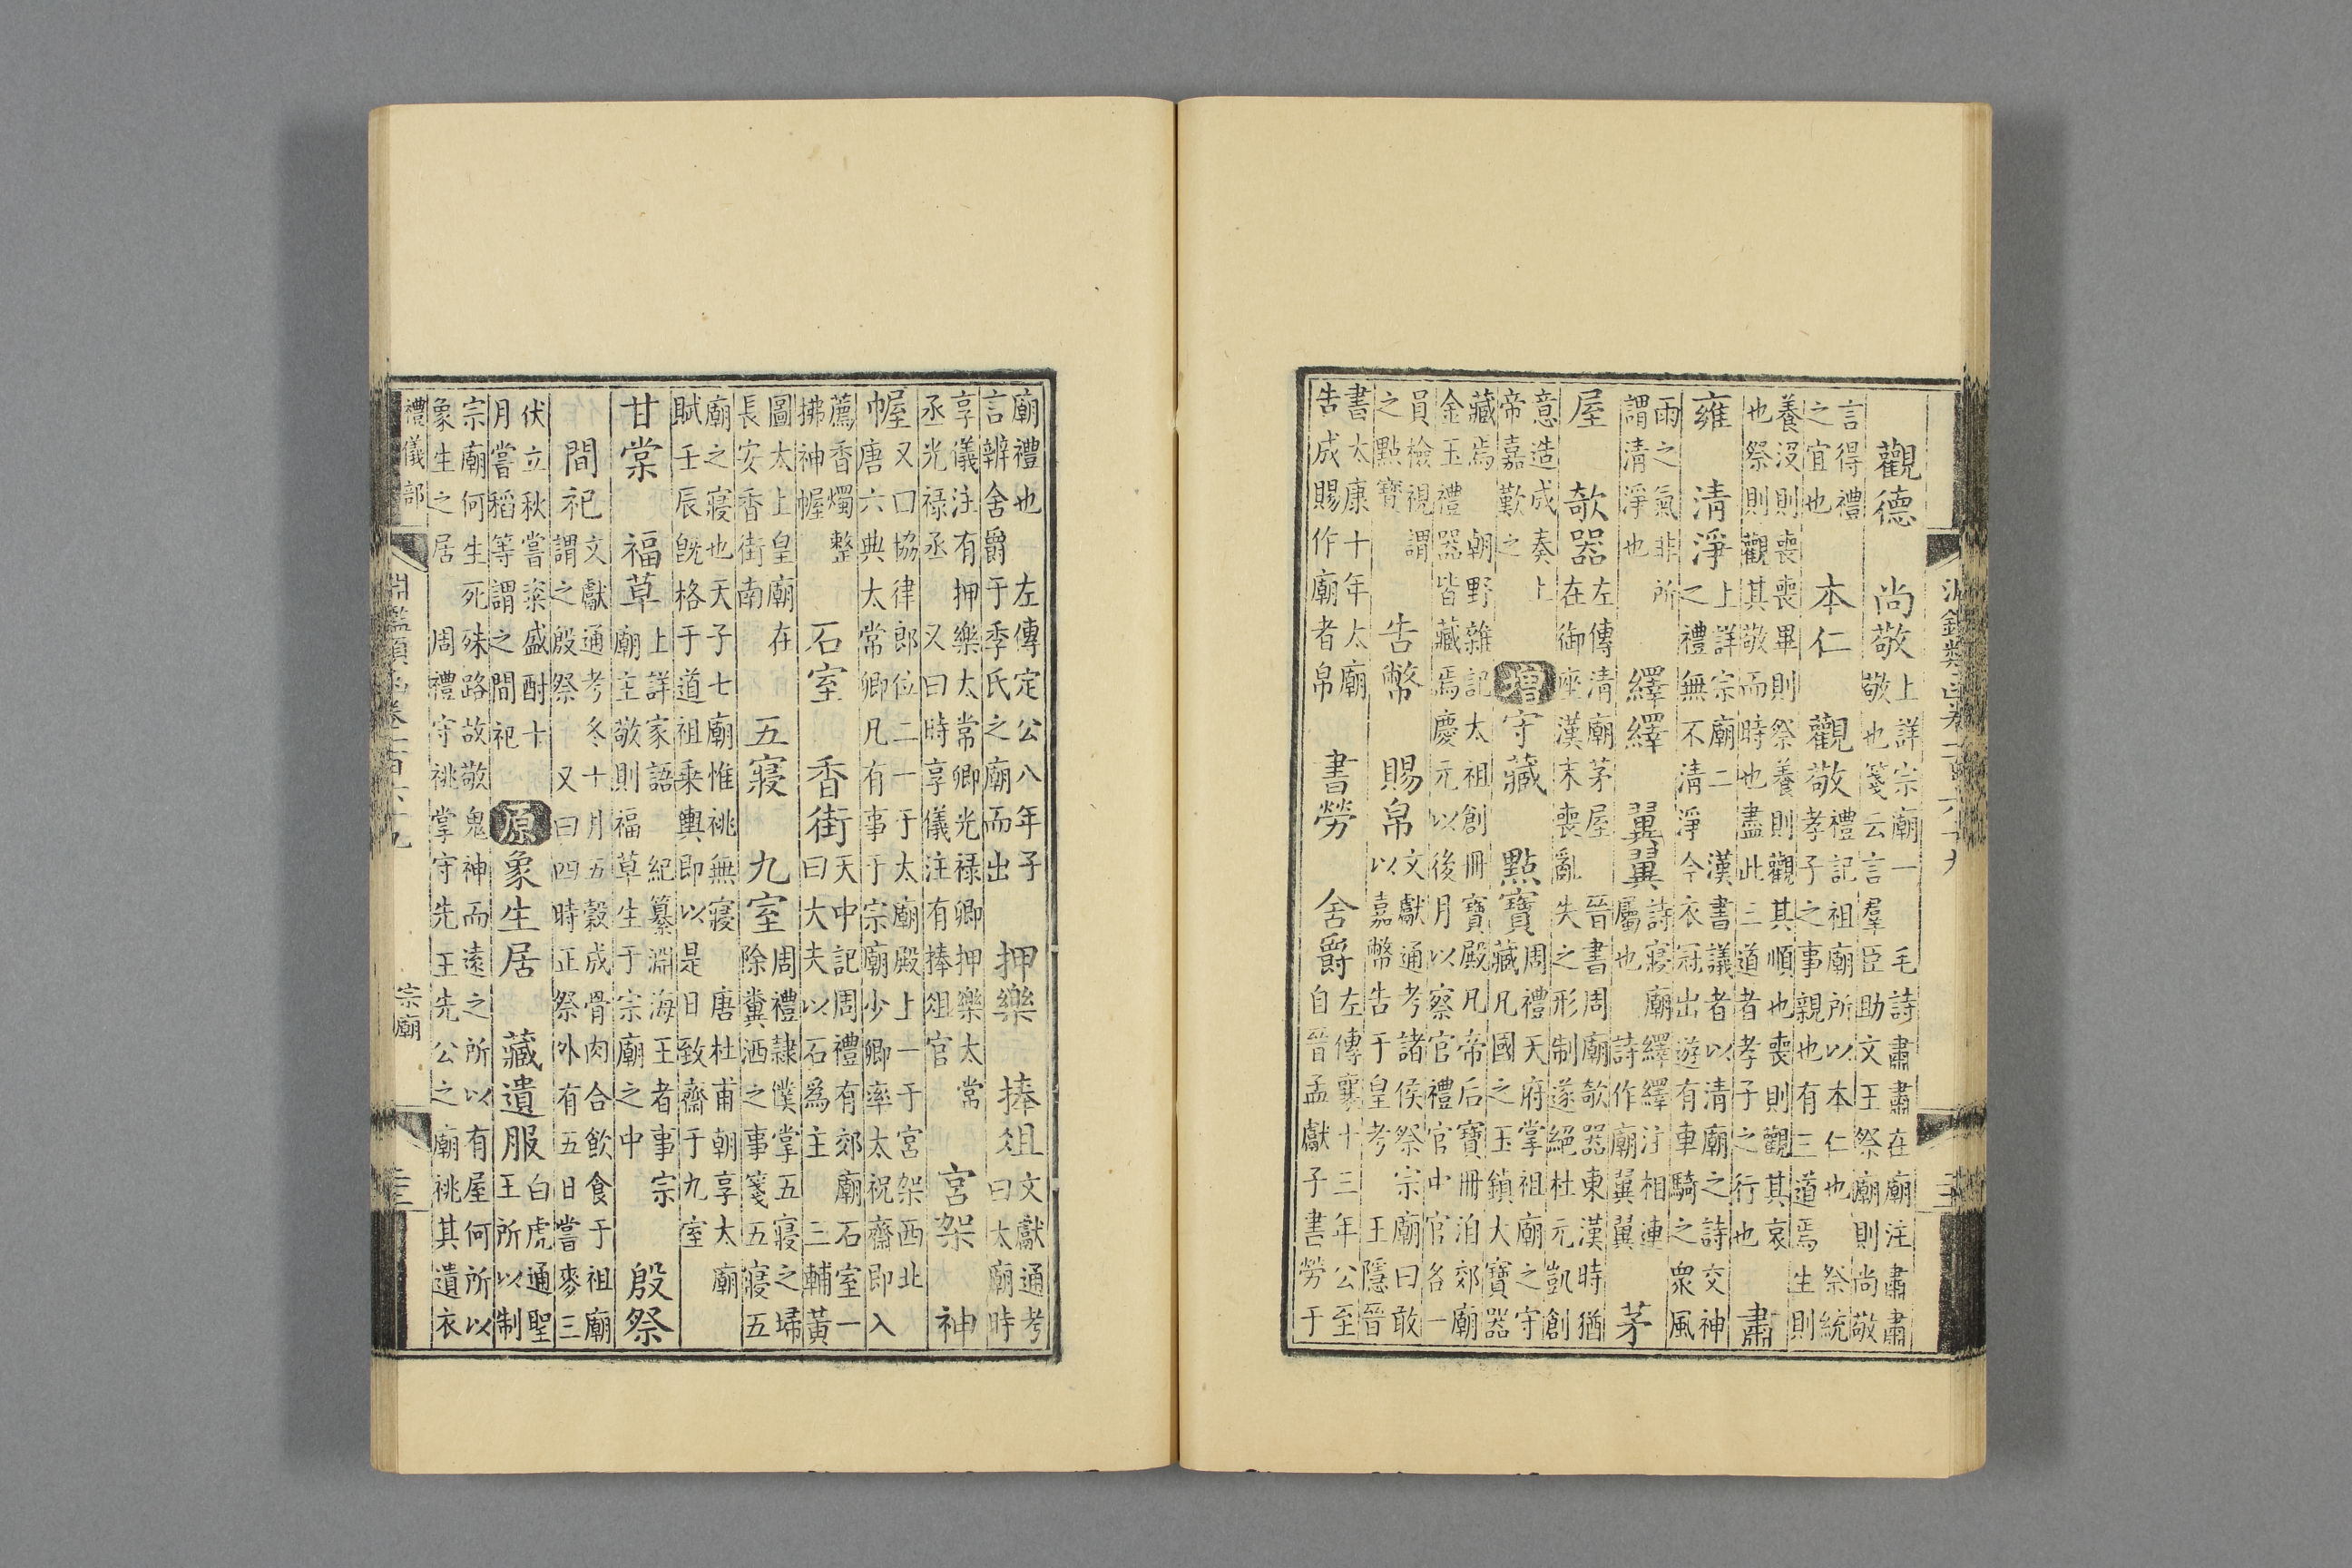 淵鑑類函卷一百六十九
觀德　尚敬
上詳宗廟一　毛詩肅肅在廟注肅肅
敬也箋云言羣臣助文王祭廟則尚敬
言得禮
之宜也
本仁　觀敬
禮記祖廟所以本仁也　祭統
孝子之事親也有三道焉生則
養沒則喪喪畢則祭養則觀其順也喪則觀其哀
也祭則觀其敬而時也盡此三道者孝子之行也
肅
雍　清淨
上詳宗廟二　漢書議者以清廟之詩交神
之禮無不清淨今衣冠出遊有車騎之衆風
雨之氣非所
謂清淨也
繹繹　翼翼
詩寢廟繹繹注相連
屬也　詩作廟翼翼
茅
屋　欹器
左傳清廟茅屋　晉書周廟欹器東漢時猶
在御座漢末喪亂失之形制遂絕杜元凱創
意造成奏上
帝嘉歎之
增守藏　點寶
周禮天府掌祖廟之守
藏凡國之玉鎮大寶器
藏焉　朝野雜記太祖創冊寶殿凡帝后寶冊洎郊廟
金玉禮器皆藏焉慶元以後月以察官禮官中官各一
員檢視謂
之點寶
告幣　賜帛
文獻通考諸侯祭宗廟曰敢
以嘉幣告于皇考　王隱晉
書太康十年太廟
告成賜作廟者帛
書勞　舍爵
左傳襄十三年公至
自晉孟獻子書勞于
廟禮也　左傳定公八年子
言辨舍爵于季氏之廟而出
押樂　捧俎
文獻通考
曰太廟時
享儀注有押樂太常卿光禄卿押樂太常
丞光禄丞　又曰時享儀注有捧俎官
宮架　神
幄
又曰協律郎位二一于太廟殿上一于宮架西北
唐六典太常卿凡有事于宗廟少卿率太祝齋即入
薦香燭整
拂神幄
石室　香街
天中記周禮有郊廟石室一
曰大夫以石為主　三輔黃
圖太上皇廟在
長安香街南
五寢　九室
周禮隷僕掌五寢之埽
除糞洒之事箋五寢五
廟之寢也天子七廟惟祧無寢　唐杜甫朝享太廟
賦壬辰旣格于道祖乗輿即以是日致齋于九室
甘棠　福草
上詳家語　紀纂淵海王者事宗
廟主敬則福草生于宗廟之中
殷祭
間祀
文獻通考冬十月五穀成骨肉合飲食于祖廟
謂之殷祭　又曰四時正祭外有五日嘗麥三
伏立秋嘗粢盛酎十
月嘗稻等謂之間祀
原象生居　藏遺服
白虎通聖
王所以制
宗廟何生死殊路故敬鬼神而遠之所以有屋何所以
象生之居　周禮守祧掌守先王先公之廟祧其遺衣
禮儀部　淵鑑類函卷一百六十九　宗廟